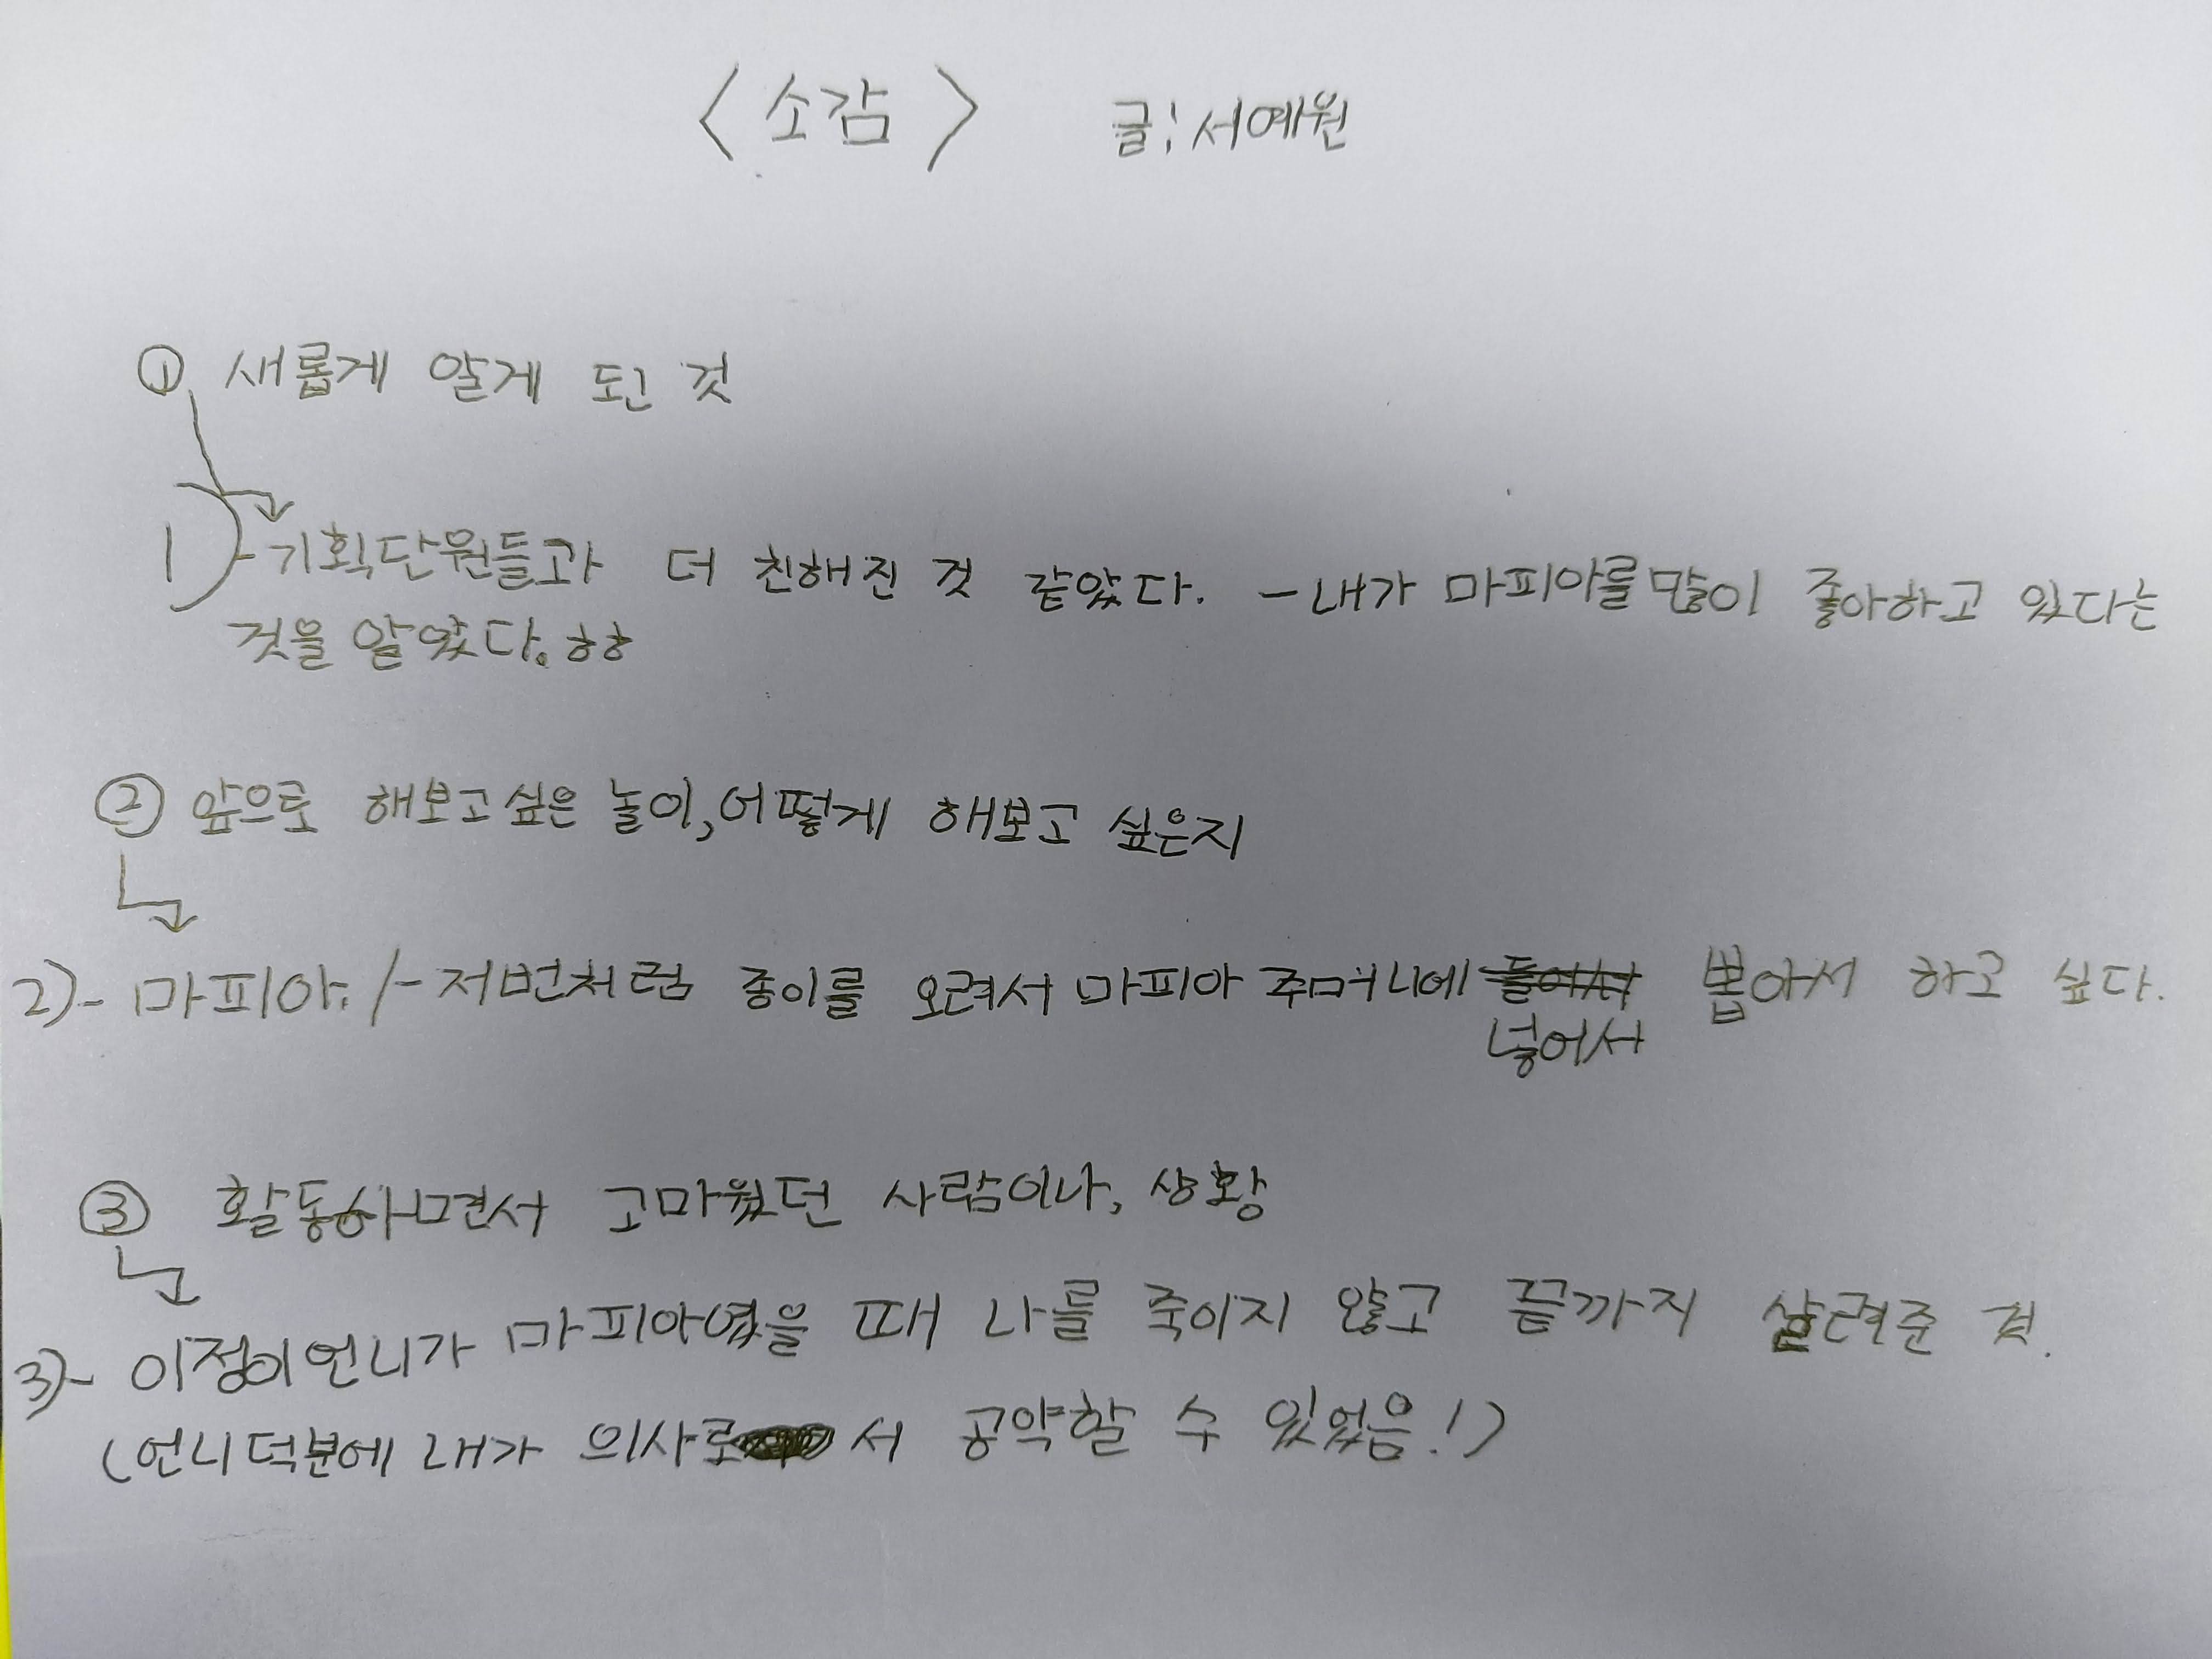 <소감> 글: 서예원
① 새롭게 알게 된 것
1) -기획단원들과 더 친해진 것 같았다. -내가 마피아를 많이 좋아하고 있다는
것을 알았다. ㅎㅎ
② 앞으로 해보고 싶은 놀이, 어떻게 해보고 싶은지
2)- 마피아. /- 저번처럼 종이를 오려서 마피아 주머니에 넣어서 뽑아서 하고 싶다.
③ 활동하면서 고마웠던 사람이나, 상황
3)- 이정이언니가 마피아였을 때 나를 죽이지 않고 끝까지 살려준 것.
(언니덕분에 내가 의사로서 공약할 수 있었음!)